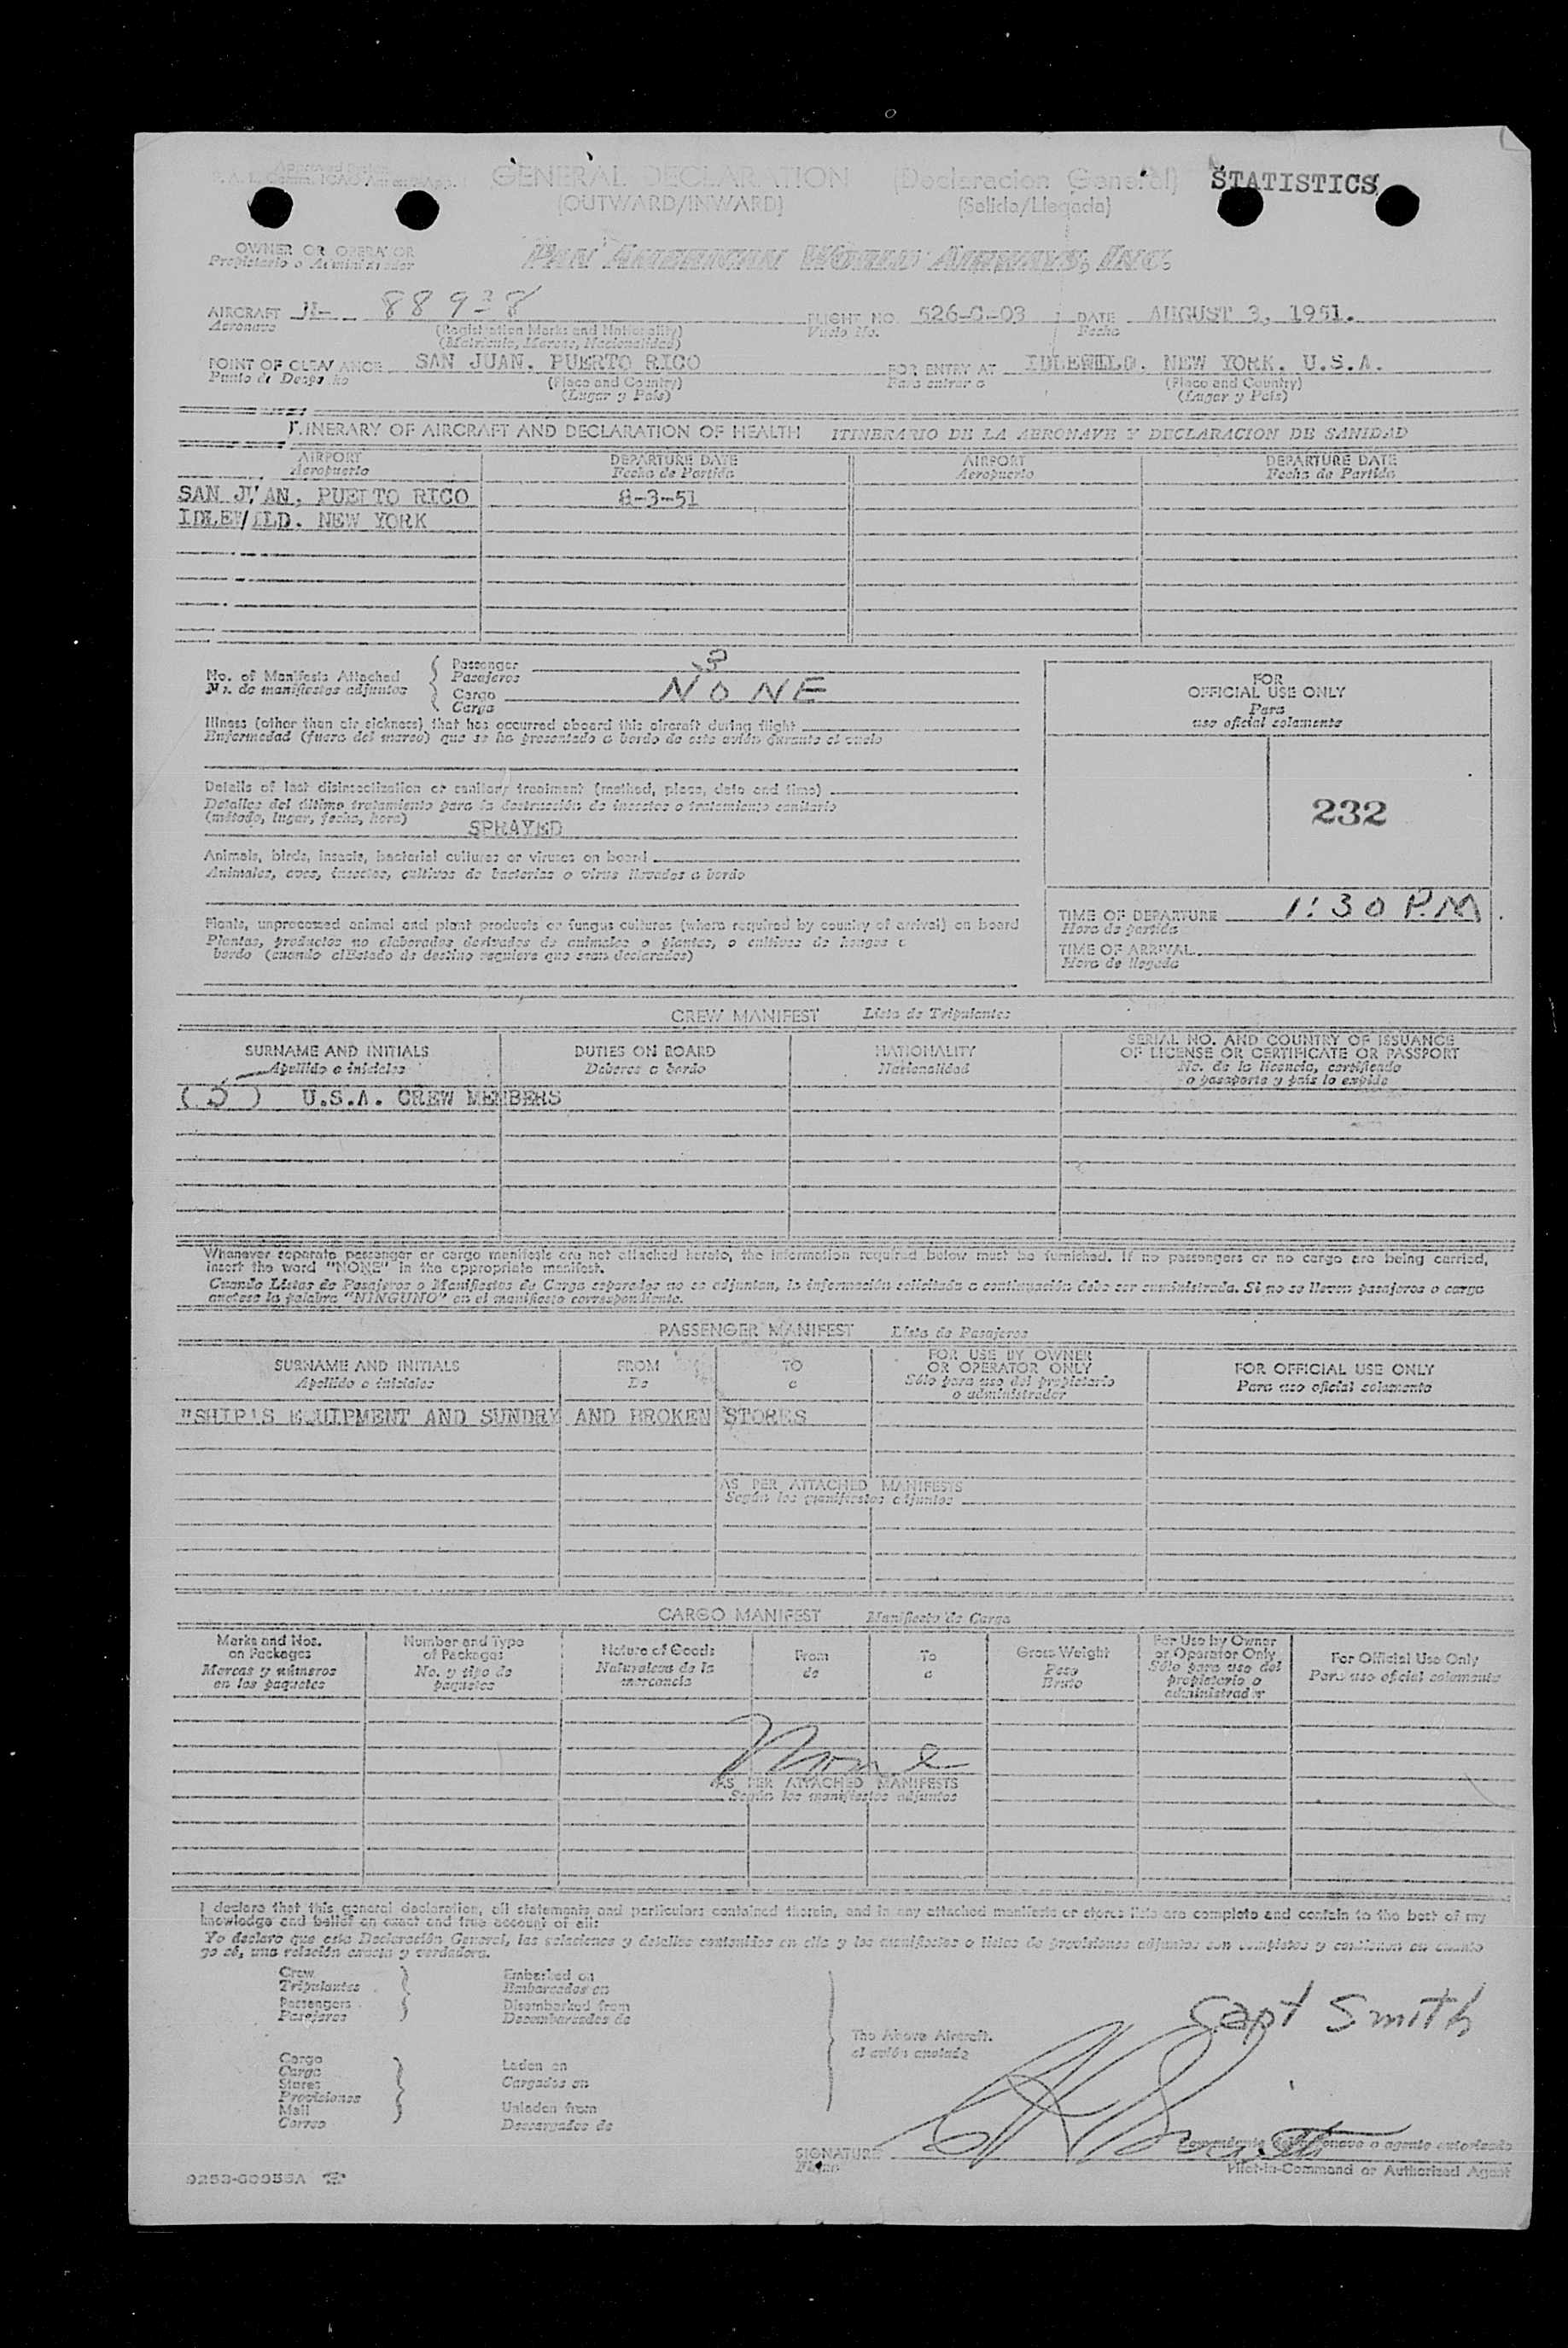 GENERAL DECLARATION (Declaracion General) STATISTICS
(OUTWARD/INWARD) (Salida/Llegada)
OWNER OR OPERATOR PAN AMERICAN WORLD AIRWAYS, INC.
Propietario o Administrador
AIRCRAFT N- 88938 FLIGHT NO. 526-C-03 DATE AUGUST 3, 1951.
Aeronave (Registration Marks and Nationality) Vuelo No. Fecha
(Matricula, Marcas, Nacionalidad)
POINT OF CLEARANCE SAN JUAN, PUERTO RICO FOR ENTRY AT IDLEWILD, NEW YORK, U.S.A.
Punto de Despacho (Place and Country) Para entrar a (Place and Country)
(Lugar y País) (Lugar y País)
ITINERARY OF AIRCRAFT AND DECLARATION OF HEALTH ITINERARIO DE LA AERONAVE Y DECLARACION DE SANIDAD
AIRPORT DEPARTURE DATE AIRPORT DEPARTURE DATE
Aeropuerto Fecha de Partida Aeropuerto Fecha de Partida
SAN JUAN, PUERTO RICO 8-3-51
IDLEWILD, NEW YORK
No. of Manifests Attached Passenger 3
No. de manifiestos adjuntos Pasajeros
Cargo NONE
Carga
FOR
OFFICIAL USE ONLY
Para
uso oficial solamente
Illness (other than air sickness) that has occurred aboard this aircraft during flight
Enfermedad (fuera del mareo) que se ha presentado a bordo de este avión durante el vuelo
Details of last disinsectization or sanitary treatment (method, place, date and time)
Detalles del último tratamiento para la destrucción de insectos o tratamiento sanitario
(método, lugar, fecha, hora) SPRAYED
232
Animals, birds, insects, bacterial cultures or viruses on board
Animales, aves, insectos, cultivos de bacterias o virus llevados a bordo
Plants, unprocessed animal and plant products or fungus cultures (where required by country of arrival) on board
Plantas, productos no elaborados derivados de animales o plantas, o cultivos de hongos a
bordo (cuando el Estado de destino requiere que sean declarados)
TIME OF DEPARTURE 1:30 P.M.
Hora de partida
TIME OF ARRIVAL
Hora de llegada
CREW MANIFEST Lista de Tripulantes
SURNAME AND INITIALS DUTIES ON BOARD NATIONALITY SERIAL NO. AND COUNTRY OF ISSUANCE
OF LICENSE OR CERTIFICATE OR PASSPORT
Apellido o iniciales Deberes a bordo Nacionalidad No. de la licencia, certificado
o pasaporte y país lo expide
(5) U.S.A. CREW MEMBERS
Whenever separate passenger or cargo manifests are not attached hereto, the information required below must be furnished. If no passengers or no cargo are being carried,
insert the word "NONE" in the appropriate manifest.
Cuando Listas de Pasajeros o Manifiestos de Carga separados no se adjuntan, la información solicitada a continuación debe ser suministrada. Si no se llevan pasajeros o carga
anótese la palabra "NINGUNO" en el manifiesto correspondiente.
PASSENGER MANIFEST Lista de Pasajeros
SURNAME AND INITIALS FROM TO FOR USE BY OWNER OR OPERATOR ONLY FOR OFFICIAL USE ONLY
Apellido e iniciales De a Sólo para uso del propietario o administrador Para uso oficial solamente
"SHIP'S EQUIPMENT AND SUNDRY AND BROKEN STORES
AS PER ATTACHED MANIFESTS
Según los manifiestos adjuntos
CARGO MANIFEST Manifiesto de Carga
Marks and Nos. on Packages Number and Type of Packages Nature of Goods From To Gross Weight For Use by Owner or Operator Only For Official Use Only
Marcas y números en los paquetes No. y tipo de paquetes Naturaleza de la mercancia de a Peso Bruto Sólo para uso del propietario o administrador Para uso oficial solamente
None
AS PER ATTACHED MANIFESTS
Según los manifiestos adjuntos
I declare that this general declaration, all statements and particulars contained therein, and in any attached manifests or stores lists are complete and contain to the best of my
knowledge and belief an exact and true account of all:
Yo declaro que esta Declaración General, las relaciones y detalles contenidos en ella y los manifiestos o listas de provisiones adjuntos son completos y contienen en cuanto
yo sé, una relación exacta y verdadera.
Crew Embarked on
Tripulantes Embarcados en
Passengers Disembarked from
Pasajeros Desembarcados de
Capt Smith
The Above Aircraft.
el avión anotado
Cargo Laden on
Carga Cargados en
Stores
Provisiones
Mail Unladen from
Correo Descargados de
SIGNATURE Comandante de Aeronave o agente autorizado
Firma Pilot-in-Command or Authorized Agent
9253-60955A